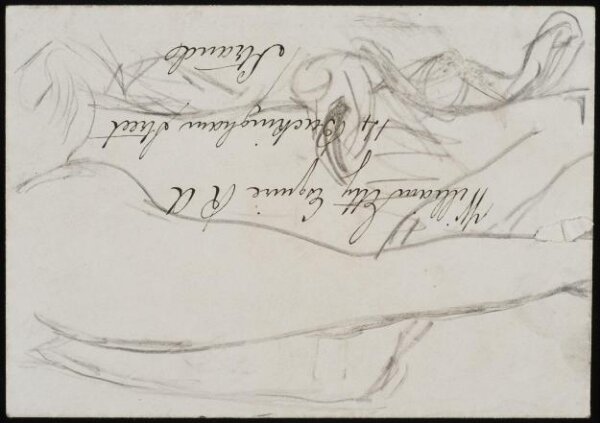 William Etty Esquire R A
14 Buckingham Street
Strand